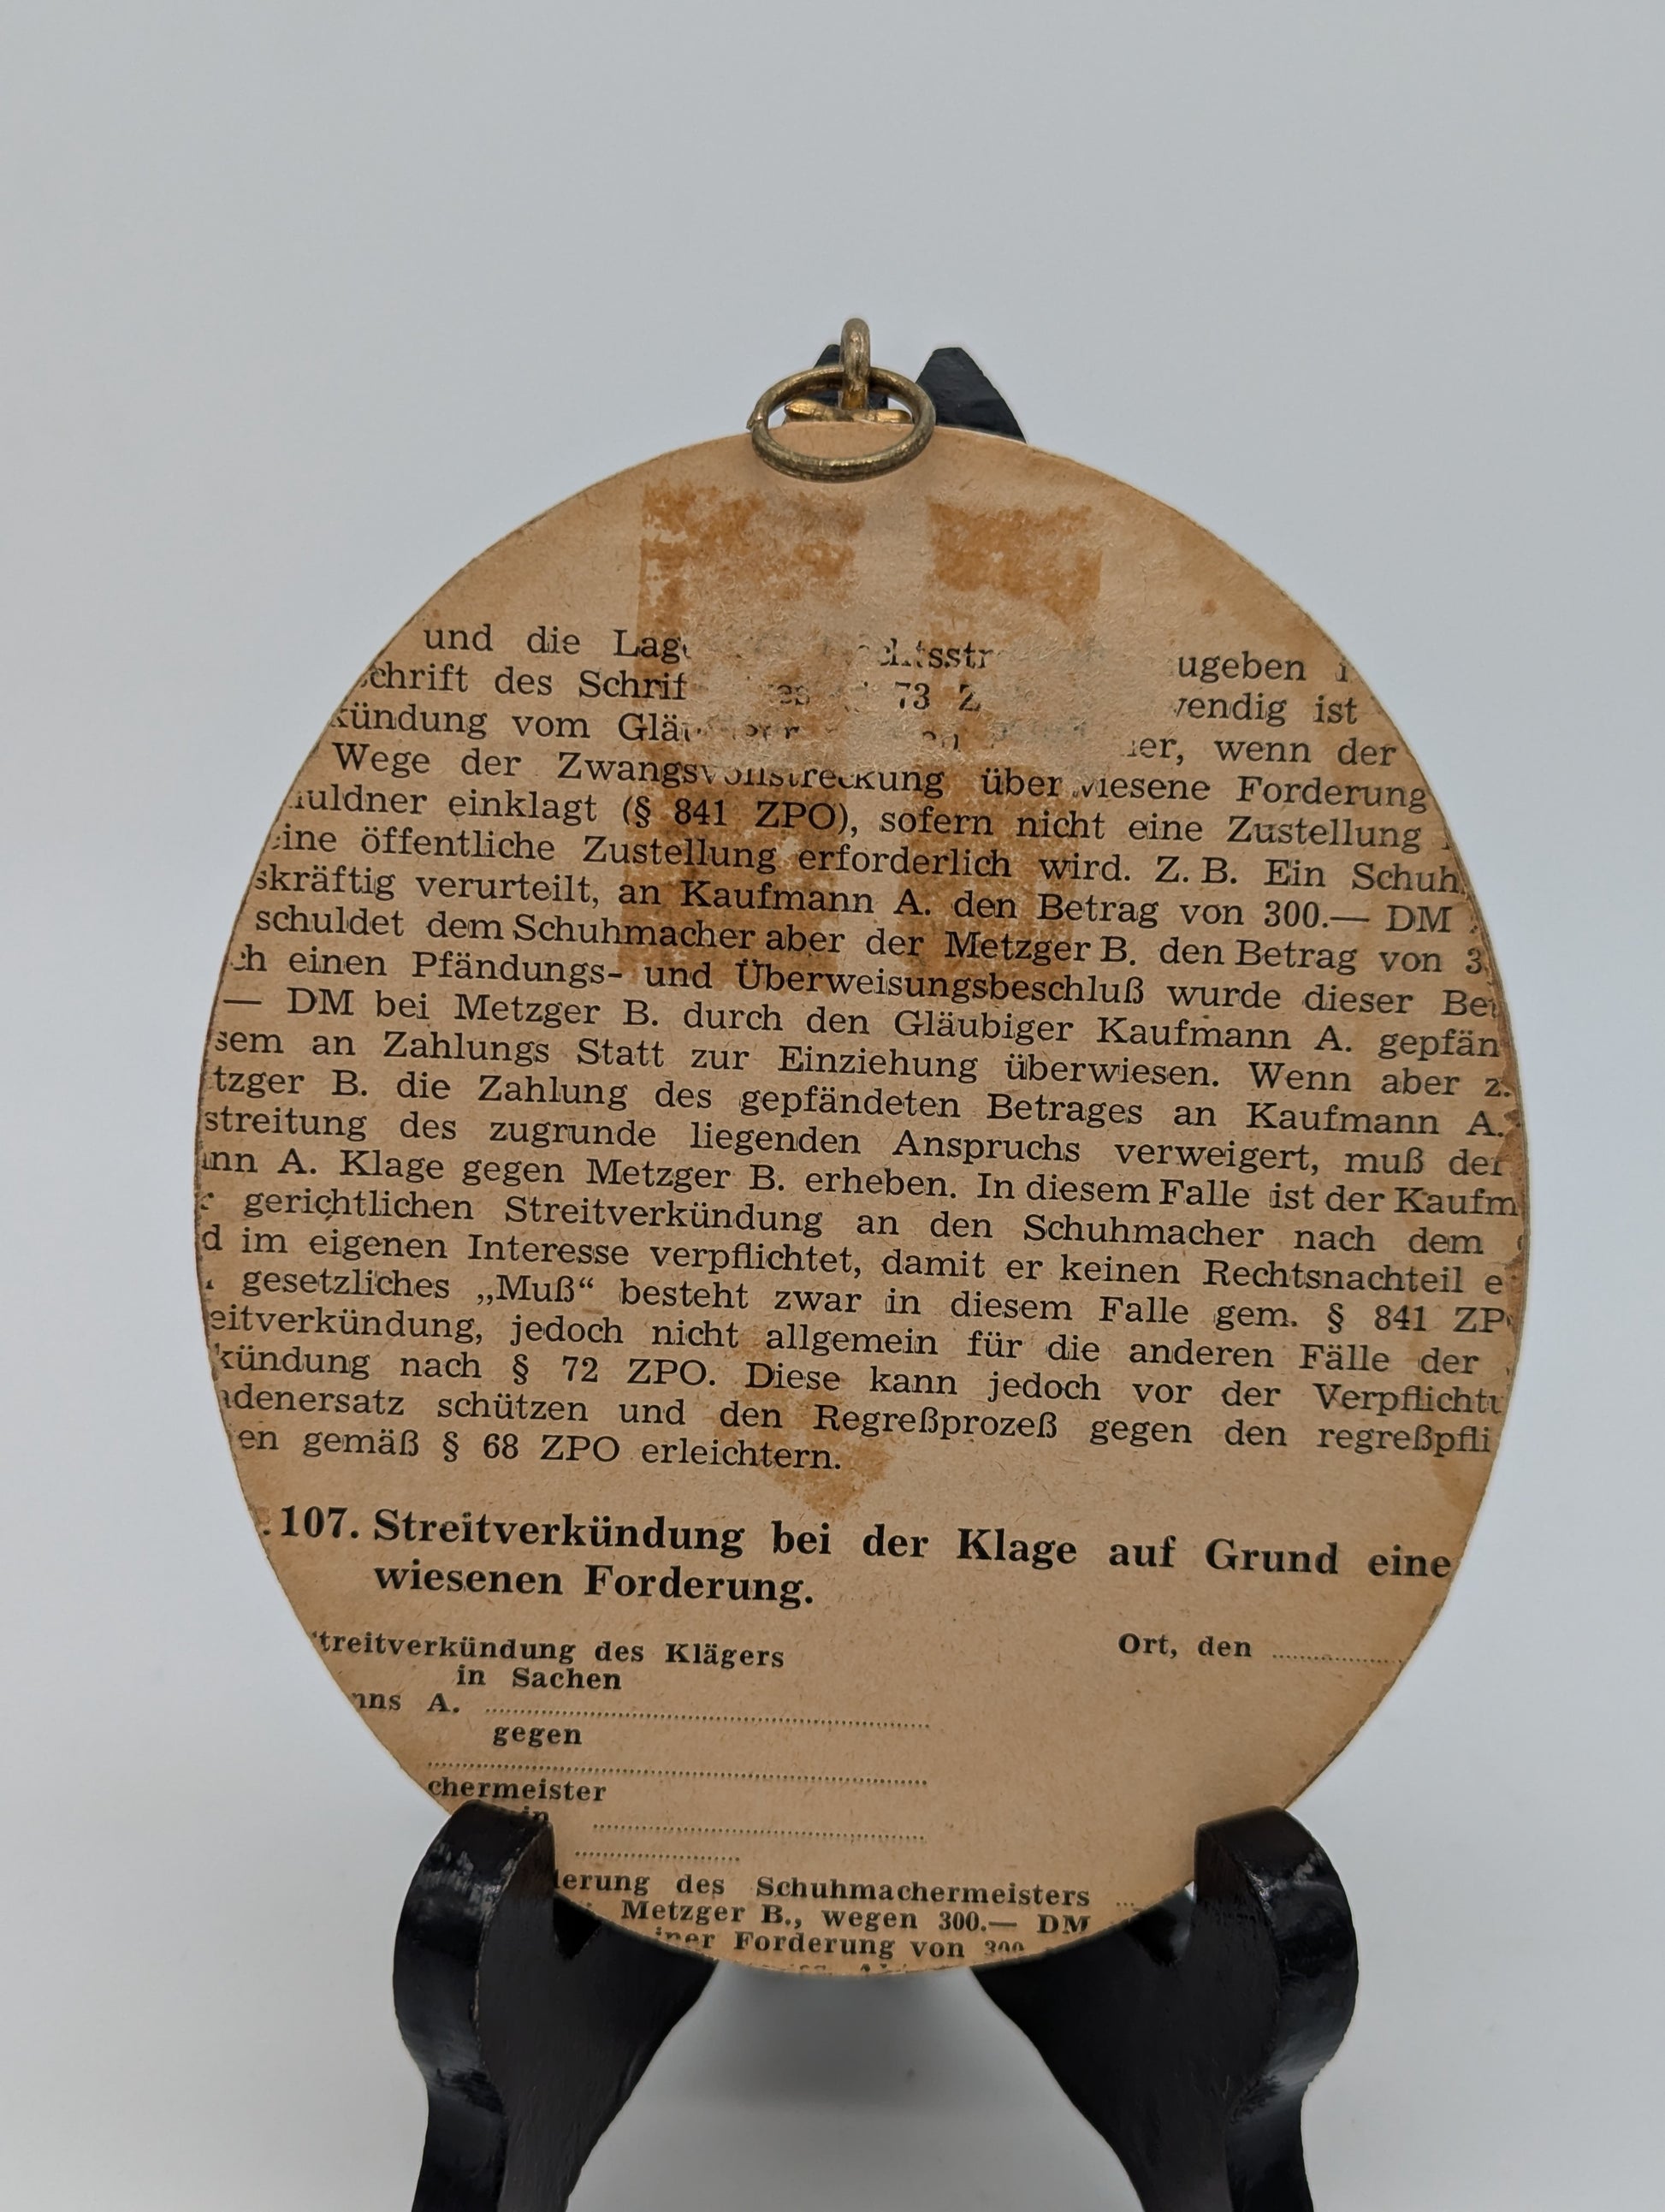 und die
des 73
vom
Wege der Zwangsvollstreckung überwiesene Forderung
einklagt (§ 841 ZPO), sofern nicht eine Zustellung
öffentliche Zustellung erforderlich wird. Z. B. Ein Schuh
skräftig verurteilt, an Kaufmann A. den Betrag von 300.— DM
schuldet dem Schuhmacher aber der Metzger B. den Betrag von 3
ch einen Pfändungs- und Überweisungsbeschluß wurde dieser Be
— DM bei Metzger B. durch den Gläubiger Kaufmann A. gepfän
sem an Zahlungs Statt zur Einziehung überwiesen. Wenn aber z.
tzger B. die Zahlung des gepfändeten Betrages an Kaufmann A.
streitung des zugrunde liegenden Anspruchs verweigert, muß der
nn A. Klage gegen Metzger B. erheben. In diesem Falle ist der Kaufm
gerichtlichen Streitverkündung an den Schuhmacher nach dem
d im eigenen Interesse verpflichtet, damit er keinen Rechtsnachteil e
gesetzliches „Muß“ besteht zwar in diesem Falle gem. § 841 ZP
eitverkündung, jedoch nicht allgemein für die anderen Fälle der
kündung nach § 72 ZPO. Diese kann jedoch vor der Verpflicht
denersatz schützen und den Regreßprozeß gegen den regreßpfli
en gemäß § 68 ZPO erleichtern.
107. Streitverkündung bei der Klage auf Grund eine
wiesenen Forderung.
treitverkündung des Klägers Ort, den
in Sachen
nns A.
gegen
chermeister
in
erung des Schuhmachermeisters
Metzger B., wegen 300.— DM
Forderung von